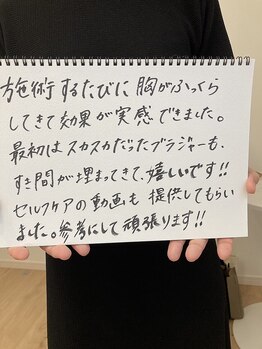 施術するたびに胸がふっくら
してきて効果が実感できました。
最初はスカスカだったブラジャーも、
すき間が埋まってきて、嬉しいです!!
セルフケアの動画も提供してもらい
ました。参考にして頑張ります!!